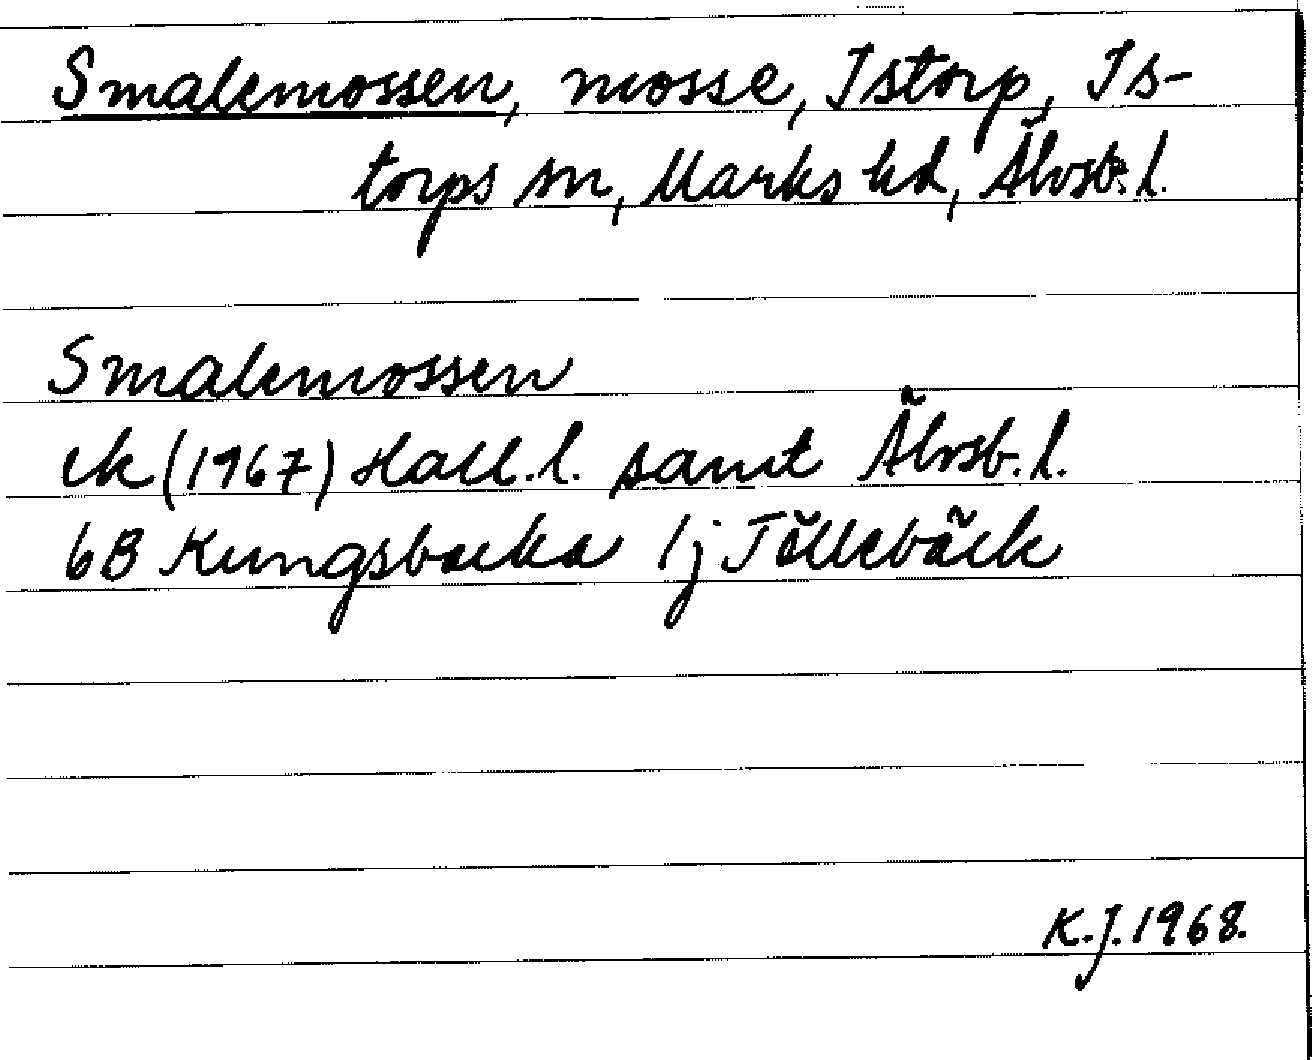 Smalemossen, mosse, Istorp, Is-
torps sn, Marks hd, Älvsb. l.
Smalemossen
ek (1967) Hall. l. samt Älvsb. l.
6B Kungsbacka 1j Töllebäck
K.J. 1968.